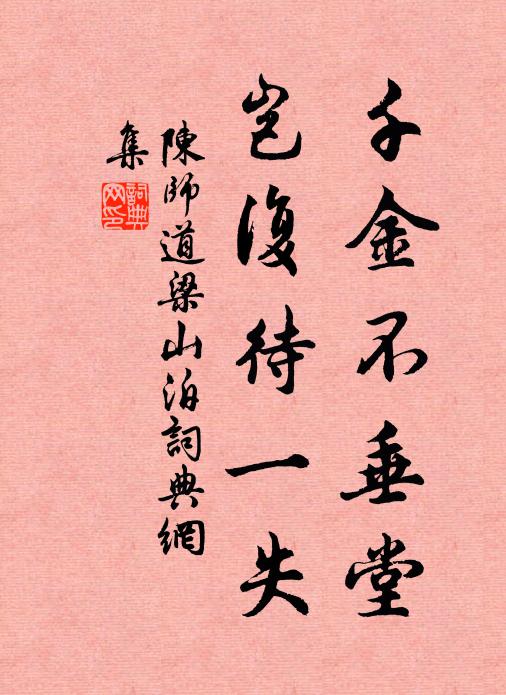 千金不垂堂
豈復待一失
陳師道梁山泊詞典網
集
詞典
网印